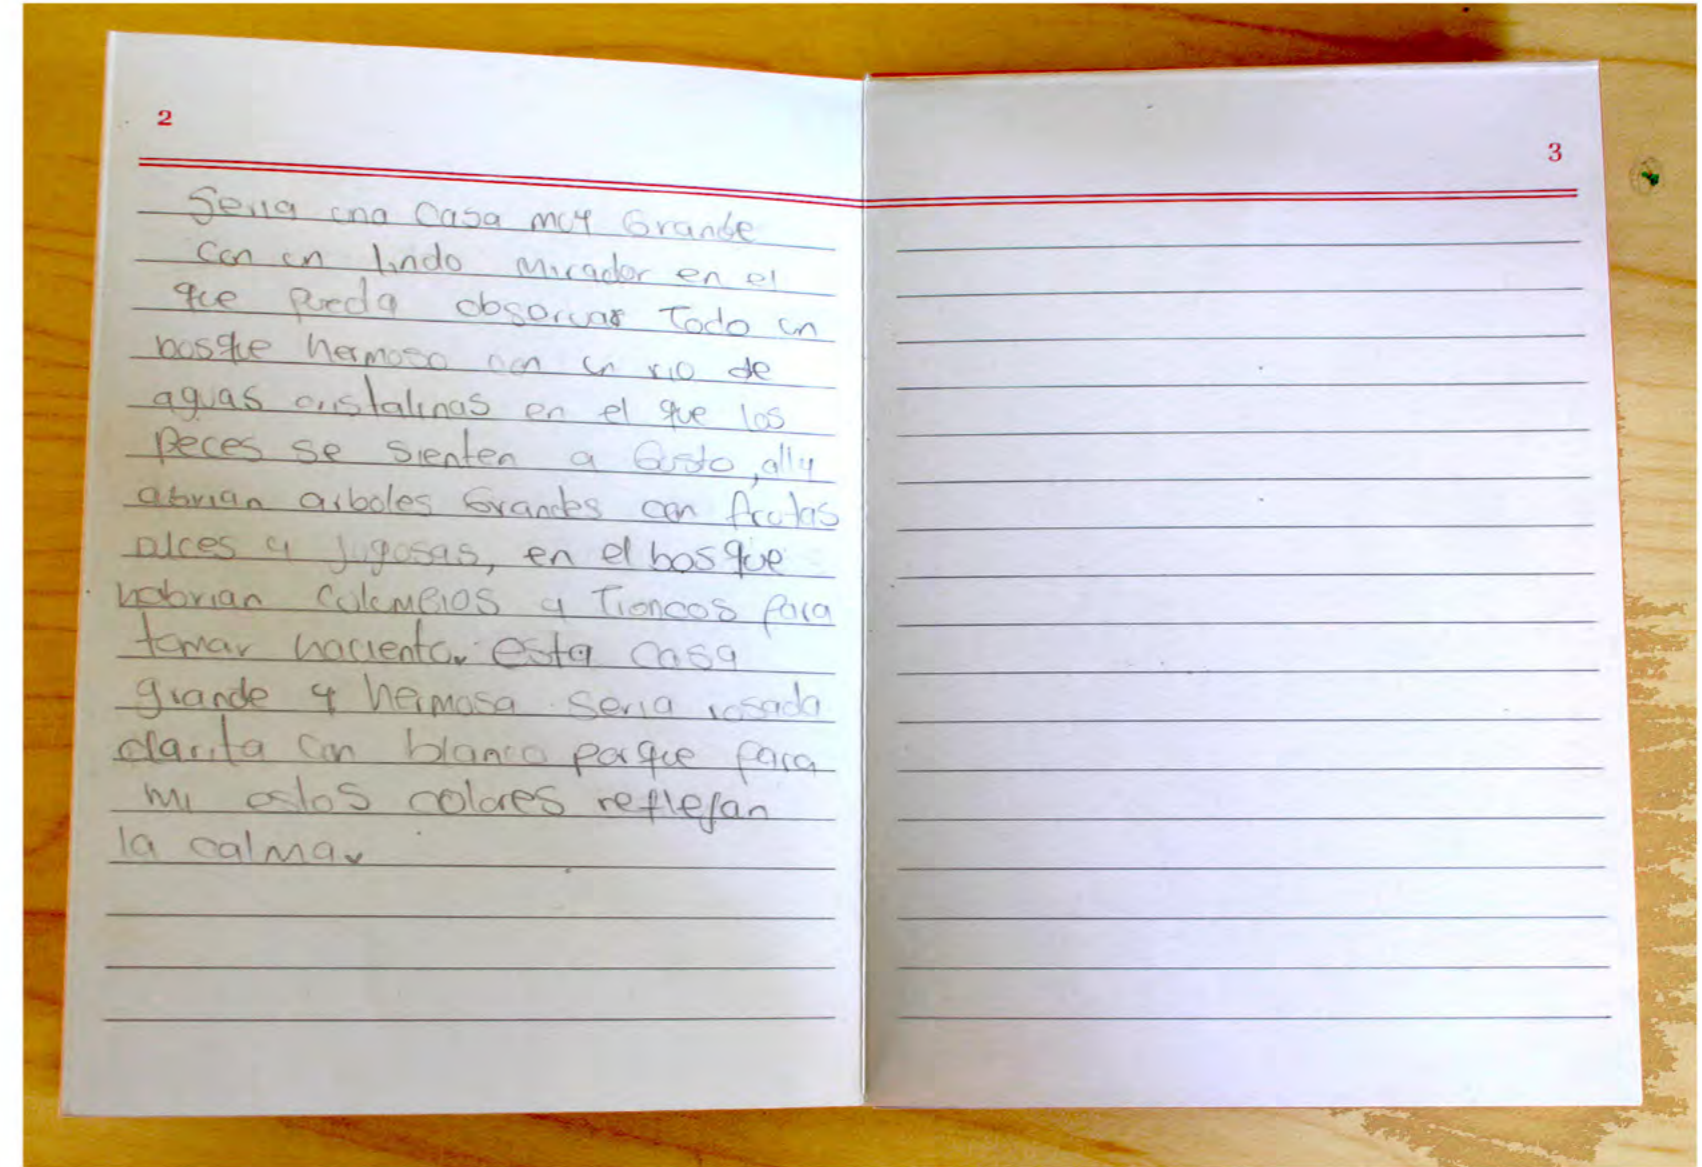 2
Seria una casa muy Grande
con un lindo mirador en el
que pueda observar Todo un
bosque hermoso con un rio de
aguas cristalinas en el que los
peces se sienten a Gusto, ally
abrian arboles Grandes con frutas
dulces y jugosas, en el bosque
habrian columpios y Troncos para
tomar haciento. esta casa
grande y hermosa seria rosada
clarita con blanco porque para
mi estos colores reflejan
la calma.
3